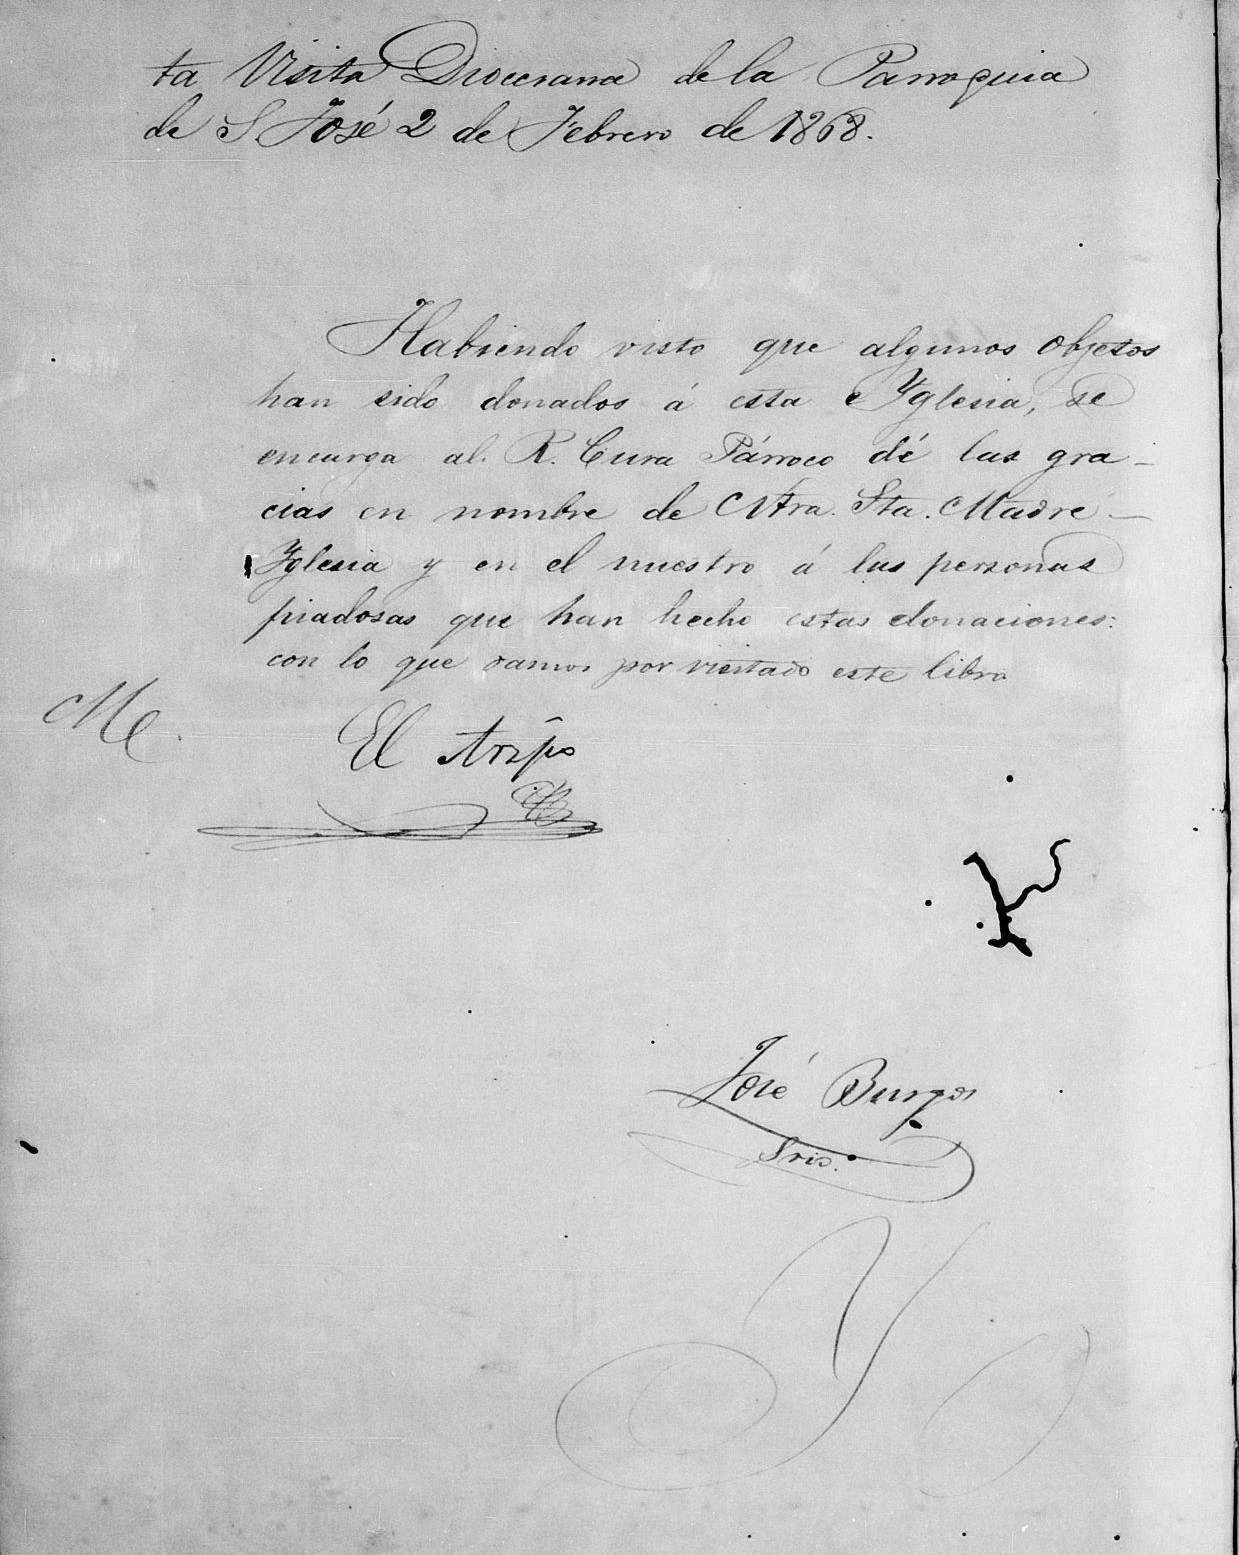 ta Visita Diocesana de la Parroquia
de S José 2 de Febrero de 1868.
Habiendo visto que algunos objetos
han sido donados á esta Yglesia, se
encarga al R. Cura Párroco dé las gra-
cias en nombre de Ntra. Sta. Madre
Yglesia y en el nuestro á las personas
piadosas que han hecho estas donaciones:
con lo que damos por visitado este libro
El Arzpo
José Burgos
Srio.
Y